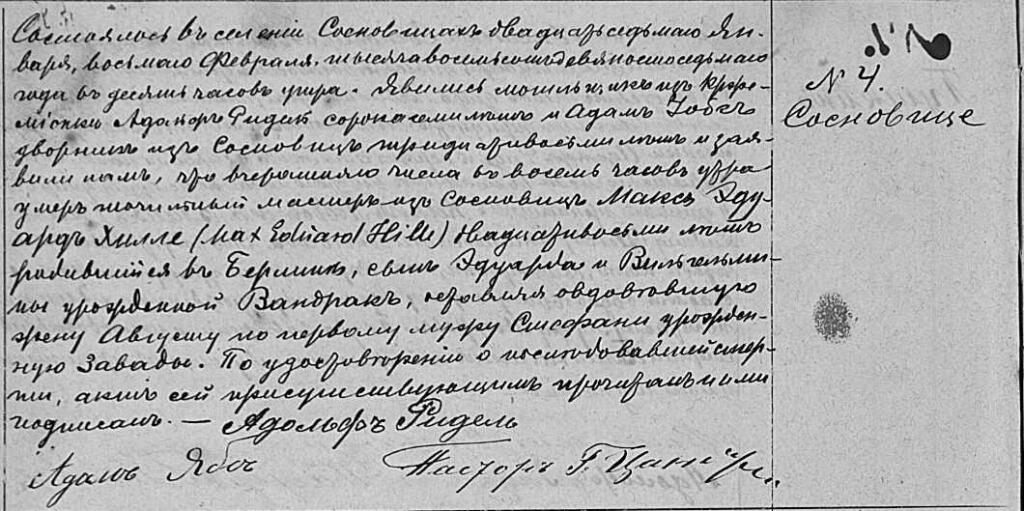 Состоялось въ селеніи Сосновицахъ двадцать седьмаго Ян-
варя, восьмаго Февраля, тысяча восемьсотъ девяностоседьмаго
года въ десять часовъ утра. Явились могильникъ изъ
Ридель сорока семи лѣтъ и Адамъ
дворникъ изъ Сосновицъ тридцативосьми лѣтъ и зая-
вили намъ, что вчерашняго числа въ восемь часовъ утра
умеръ мастеръ изъ Сосновицъ Максъ Эду-
ардъ Хилле (Max Eduard Hille) двадцативосьми лѣтъ
родившійся въ Берлинѣ, сынъ Эдуарда и Вильгельми-
ны урожденной Вандракъ, оставляя овдовѣвшую
жену Августу по первому мужу Стефани урожден-
ную Завады. По удостовѣреніи о послѣдовавшей смер-
ти, актъ сей присутствующимъ прочитанъ и ими
подписанъ. — Адольфъ Ридель
Адамъ Ябсъ Пасторъ Г.
N 4.
Сосновице